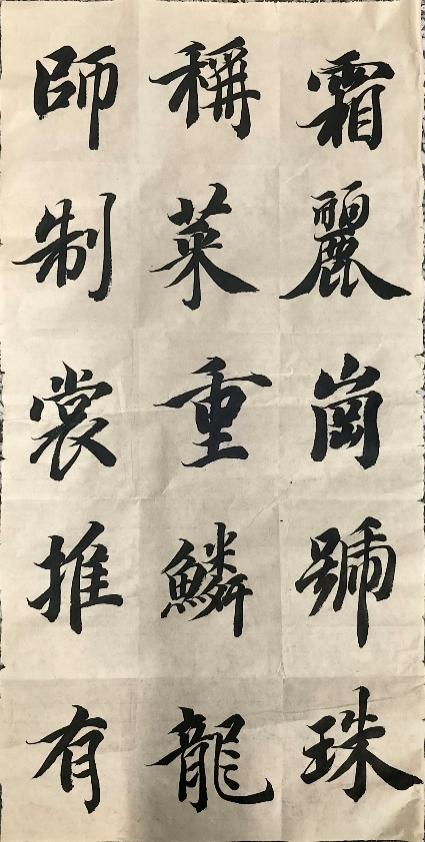 霜麗崗號珠
稱菜重鱗龍
師制裳推有